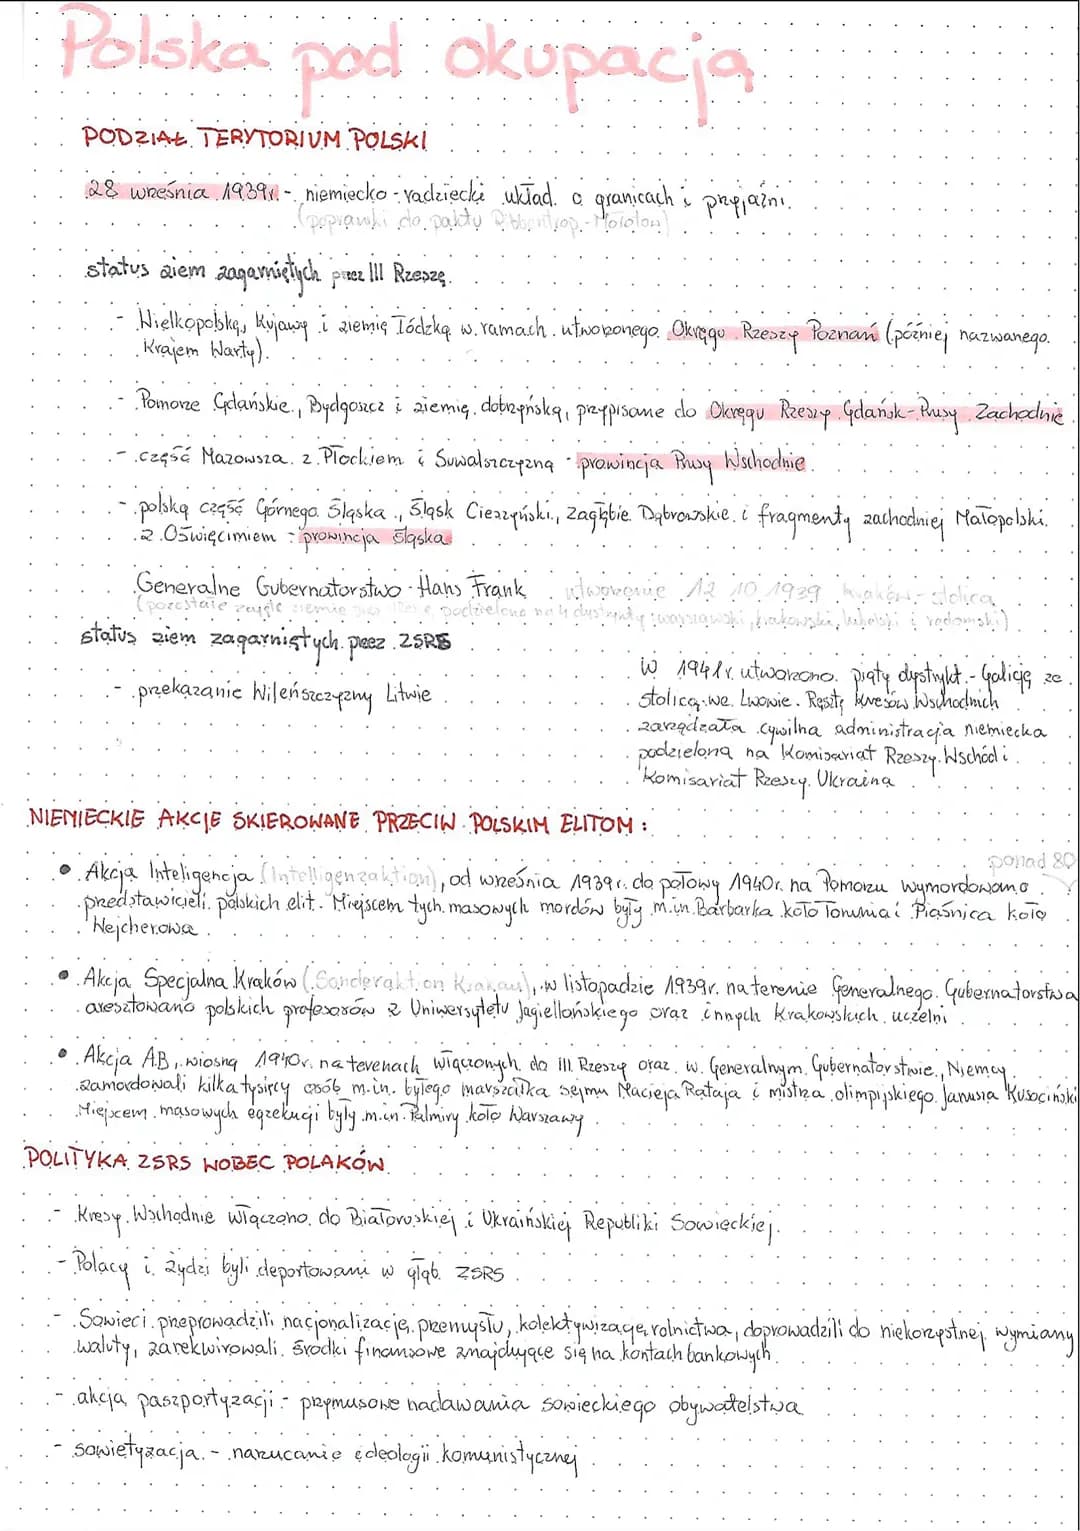 Polska pod okupacją
PODZIAŁ TERYTORIUM POLSKI
28 września 1939r. - niemiecko-radziecki układ o granicach i przyjaźni.
(poprawki do paktu Ribbentrop-Mołotow)
status ziem zagarniętych przez III Rzeszę
- Wielkopolskę, Kujawy i ziemię łódzką w ramach utworzonego Okręgu Rzeszy Poznań (później nazwanego
Krajem Warty).
- Pomorze Gdańskie, Bydgoszcz i ziemię dobrzyńską, przypisane do Okręgu Rzeszy Gdańsk-Prusy Zachodnie
- część Mazowsza z Płockiem i Suwalszczyzną - prowincja Prusy Wschodnie
- polską część Górnego Śląska, Śląsk Cieszyński, Zagłębie Dąbrowskie i fragmenty zachodniej Małopolski
z Oświęcimiem - prowincja Śląska
Generalne Gubernatorstwo - Hans Frank utworzenie 12 10 1939 Kraków - stolica
(pozostałe zajęte ziemie podzielone na 4 dystrykty: warszawski, krakowski, lubelski i radomski)
status ziem zagarniętych przez ZSRS
- przekazanie Wileńszczyzny Litwie
W 1941r. utworzono piąty dystrykt - Galicję ze
stolicą we Lwowie. Resztę kresów Wschodnich
zarządzała cywilna administracja niemiecka
podzielona na Komisariat Rzeszy Wschód i
Komisariat Rzeszy Ukraina
NIEMIECKIE AKCJE SKIEROWANE PRZECIW POLSKIM ELITOM:
ponad 80
• Akcja Inteligencja (Intelligenzaktion), od września 1939r. do połowy 1940r. na Pomorzu wymordowano
przedstawicieli polskich elit. Miejscem tych masowych mordów były m.in. Barbarka koło Torunia i Piaśnica koło
Wejcherowa
• Akcja Specjalna Kraków (Sonderaktion Krakau), w listopadzie 1939r. na terenie Generalnego Gubernatorstwa
aresztowano polskich profesorów z Uniwersytetu Jagiellońskiego oraz innych krakowskich uczelni
• Akcja AB, wiosną 1940r. na terenach włączonych do III Rzeszy oraz w Generalnym Gubernatorstwie, Niemcy
zamordowali kilka tysięcy osób m.in. byłego marszałka sejmu Macieja Rataja i mistrza olimpijskiego Janusza Kusocińskiego
Miejscem masowych egzekucji były m.in. Palmiry koło Warszawy
POLITYKA ZSRS WOBEC POLAKÓW
- Kresy Wschodnie włączono do Białoruskiej i Ukraińskiej Republiki Sowieckiej.
- Polacy i żydzi byli deportowani w głąb ZSRS
- Sowieci przeprowadzili nacjonalizację przemysłu, kolektywizację rolnictwa, doprowadzili do niekorzystnej wymiany
waluty, zarekwirowali środki finansowe znajdujące się na kontach bankowych
- akcja paszportyzacji - przymusowe nadawania sowieckiego obywatelstwa
- sowietyzacja - narzucanie ideologii komunistycznej